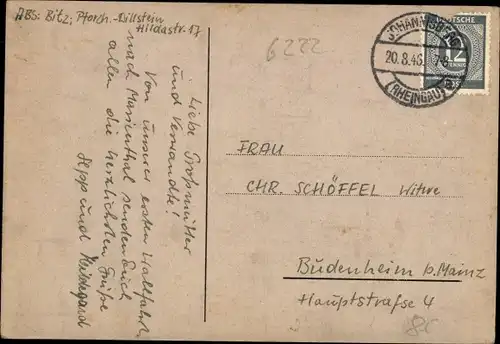 ABS: Bitz, Pforzh.-Dillstein
Hildastr. 17
6222
Liebe Großmutter
und Verwandte!
Von unserer ersten Wallfahrt
nach Marienthal senden Euch
allen die herzlichsten Grüße
Sepp und Hildegard
JOHANNISBERG
20.8.46. 7-8
(RHEINGAU)
DEUTSCHE
12
PFENNIG
FRAU
CHR. SCHÖFFEL Witwe
Budenheim b. Mainz
Hauptstraße 4